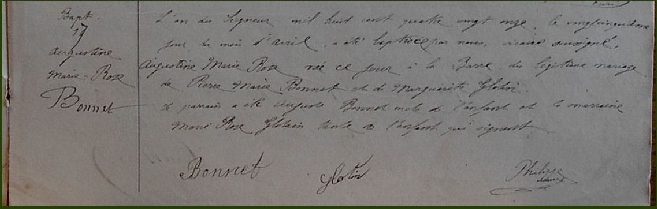 Bapt.
17
Augustine
Marie-Rose
Bonnet
L'an du Seigneur mil huit cent quatre vingt onze, le vingt
jour du mois d'avril, a été baptisée par nous, vicaire soussigné,
Augustine Marie Rose née ce jour à la Barre du légitime mariage
de Pierre Marie Bonnet et de Marguerite Glotin.
Le parrain a été Auguste Bonnet oncle de l'enfant et la marraine
Rose Glotin tante de l'enfant qui signent
Bonnet
Glotin
Philippe